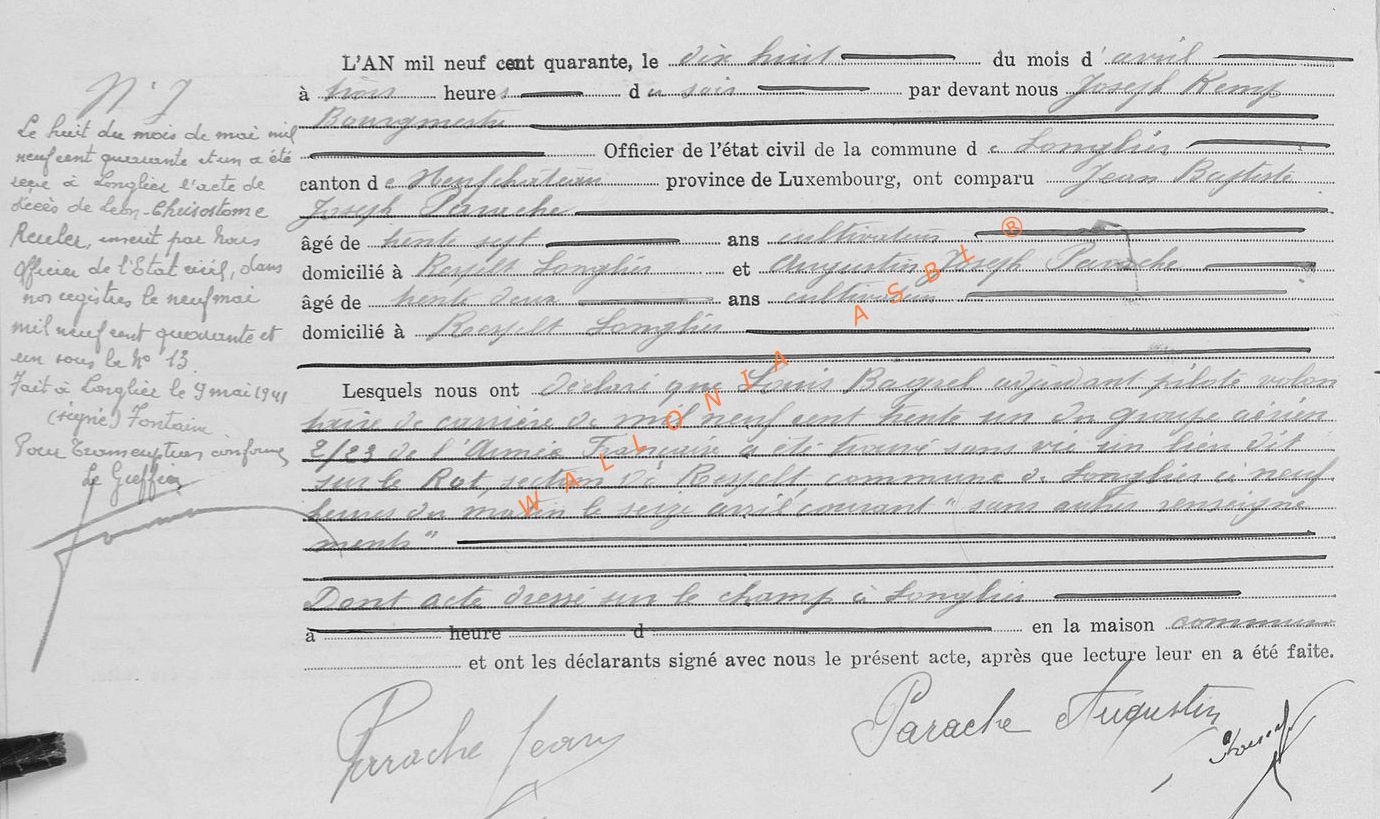 N° 7
Le huit du mois de mai mil
neuf cent quarante et un a été
à Longlier l'acte de
décès de Léon-Chrisostome
Reuler, inscrit par Nous
Officier de l'Etat civil, dans
nos registres le neuf mai
mil neuf cent quarante et
un sous le N° 13.
Fait à Longlier le 9 mai 1941
(signé) Fontaine
Pour Transcription conforme
Le Greffier
L'AN mil neuf cent quarante, le dix huit du mois d'avril
à trois heures du soir par devant nous Joseph Kemp
Bourgmestre
Officier de l'état civil de la commune de Longlier
canton de Neufchateau province de Luxembourg, ont comparu Jean Baptiste
Joseph Parache
âgé de trente sept ans cultivateur
domicilié à Respelt Longlier et Augustin Joseph Parache
âgé de trente deux ans cultivateur
domicilié à Respelt Longlier
Lesquels nous ont déclaré que Louis adjudant pilote volon
taire de carrière de mil neuf cent trente un du groupe aérien
2/23 de l'Armée Française a été trouvé sans vie un lieu dit
sur le Rot, section de Respelt, commune de Longlier à neuf
heures du matin le seize avril courant "sans autres renseigne
ments"
Dont acte dressé sur le champ à Longlier
à heure d en la maison commune
et ont les déclarants signé avec nous le présent acte, après que lecture leur en a été faite.
Parache Jean
Parache Augustin
WALLONIA ASBL ®